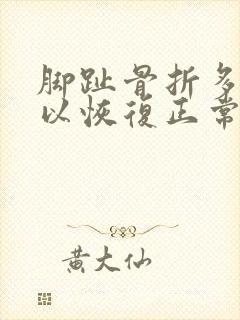 脚趾骨折多
以恢復正常
黄大仙